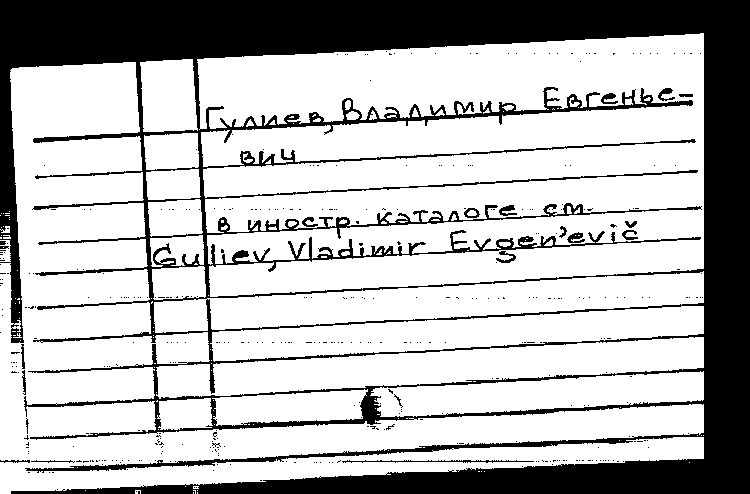 Гулиев, Владимир Евгенье=
вич
в иностр. каталоге см.
Guliev, Vladimir Evgen'evič